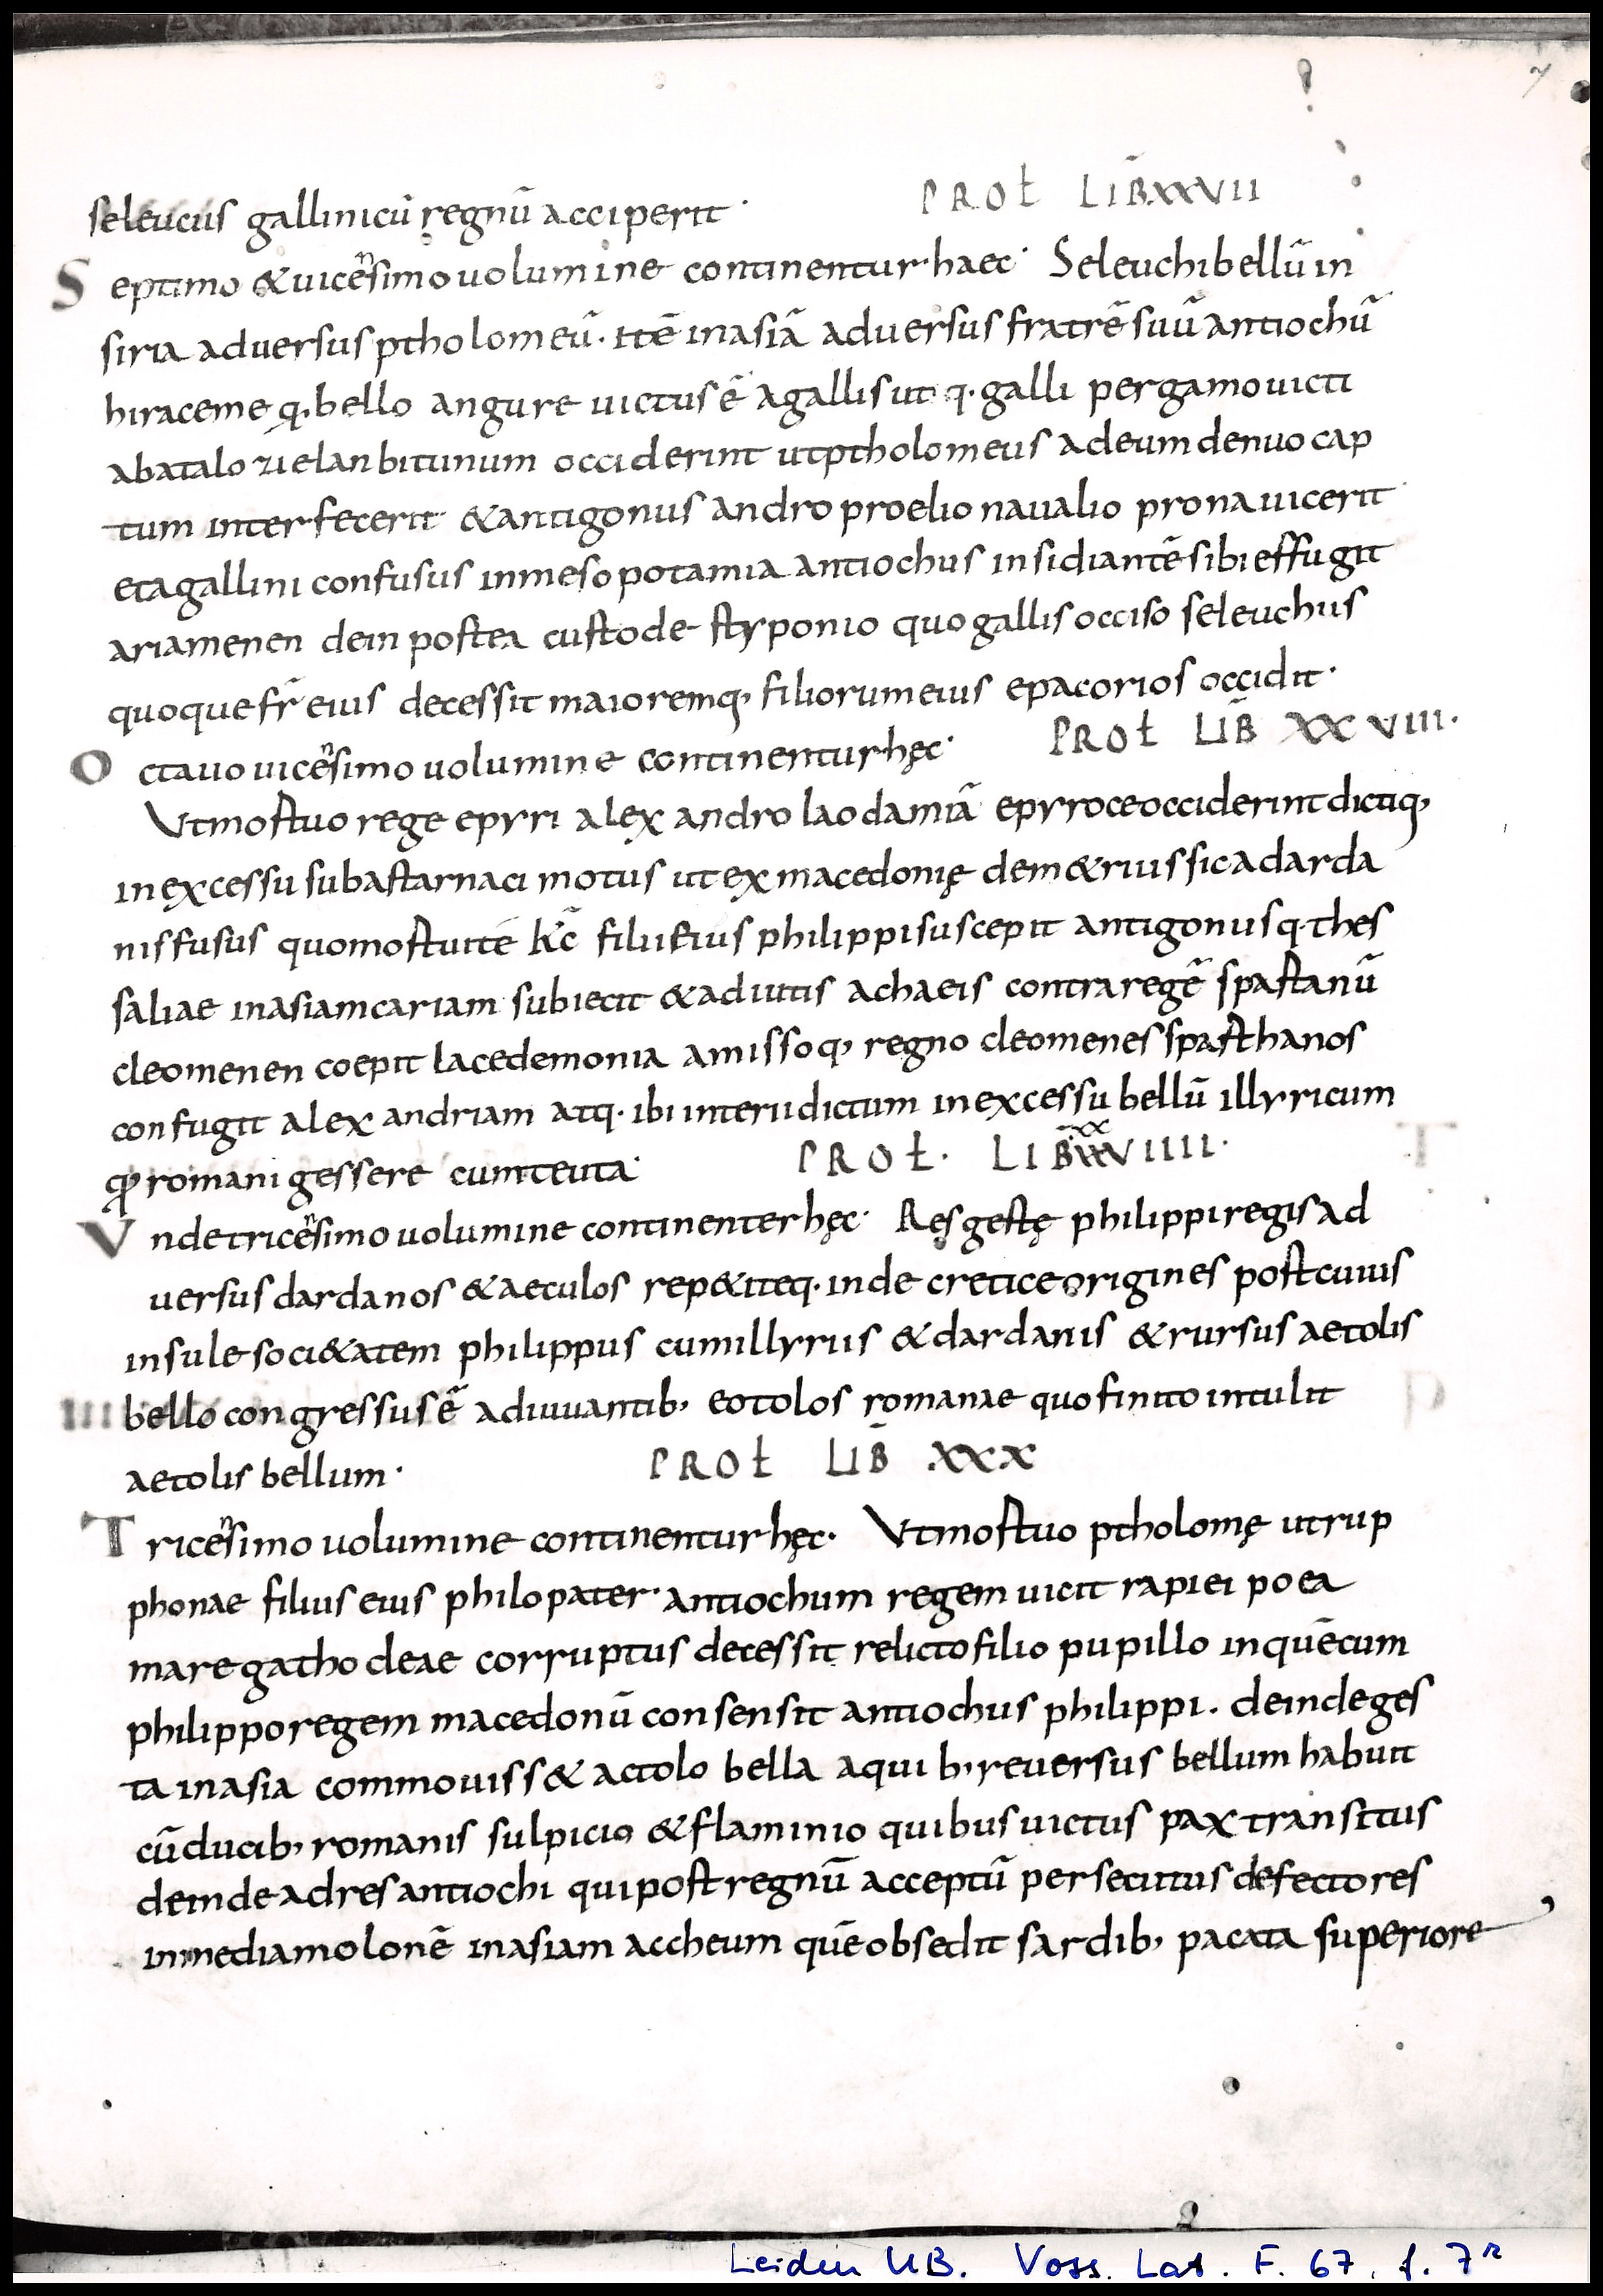 7
seleucus gallinicū regnū acciperit· PROŁ LIB̄XXVII
Septimo &uicēsimo uolumine continentur haec· Seleuchi bellū in
siria aduersus ptholomeū· itē inasiā aduersus fratrē suū antiochū
hiraceme q· bello angure uictus ē agallis ut q· galli pergamo uicti
abatalo zielan bitunum occiderint utptholomeus adeum denuo cap
tum interfecerit &antigonus andro proelio naualio prona uicerit·
etagallini confusus inmesopotamia antiochus insidiantē sibi effugit
ariamenen dein postea custode styponio quo gallis occiso seleuchus
quoque fr̄ eius decessit maioremq, filiorum eius epacorios occidit·
Octauo uicēsimo uolumine continentur hęc· PROŁ LIB̄ XXVIII·
Vtmostuo rege epyri alexandro laodamiā epyroce occiderint dictiq,
inexcessu subastarnaci motus ut ex macedonię dem&rius sic adarda
nis fusus quomostuitē kc̄ filii eius philippi suscepit antigonus q· thes
saliae inasiam cariam subiecit &adiutis achaeis contra regē spastanū
cleomenen coepit lacedemonia amissoq, regno cleomenes spasthanos
confugit alexandriam atq· ibi interiidictum inexcessu bellū illyricum
ꝙ romani gessere cumteuta· PROŁ· LIB̄XXVIIII·
xx
T
Vndetricēsimo uolumine continenter hęc· Res gestę philippi regis ad
uersus dardanos &aeculos rep&iteq· inde cretice origines post cuius
insule soci&atem philippus cumillyriis &dardanis &rursus aetolis
bello congressus ē adiuuantib, eotolos romanae quo finito intulit
aetolis bellum· PROŁ LIB̄ XXX
Tricēsimo uolumine continentur hęc· Vtmostuo ptholomę utrup
phonae filius eius philopater· antiochum regem uicit rapiei poea
mare gathocleae corruptus decessit relicto filio pupillo in quēcum
philippo regem macedonū consensit antiochus philippi· deinde ges
ta inasia commouiss& actolo bella aquib, reuersus bellum habuit
cūducib, romanis sulpicio &flaminio quibus uictus pax transitus
deinde adres antiochi qui post regnū acceptū persecutus defectores
inmediamolonē inasiam accheum quē obsedit sardib, pacata superiore
Leiden UB. Voss. Lat. F. 67, f. 7r